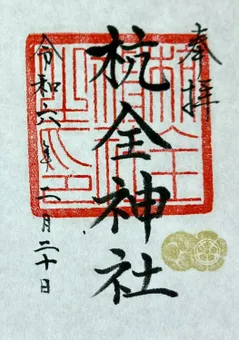 奉拝
杭全神社
令和六年七月二十日
杭全
神社
之印